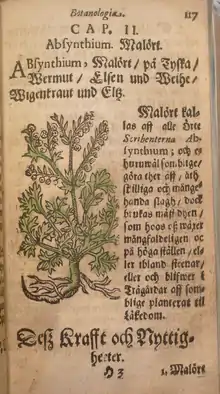 Botanologia.
117
CAP. II.
Absynthium. Malört.
ABsynthium, Malört / på Tyska /
Wermut / Elsen und Weihe /
Wigentraut und Eltz.
Malört kal-
las aff alle Örte
Scribenterna Ab-
synthium; och
huruwäl som
göra ther aff / äth-
skilliga och mänge-
handa slagh / dock
brukas mäst
som hoos oß wäxer
mångfaldeligen
på höga ställen /
ler ibland steenar /
eller och blifwer i
Trägårdar aff som-
blige planterat til
Läkedom.
Deß Krafft och Nyttig-
heeter.
H 3
1. Malört